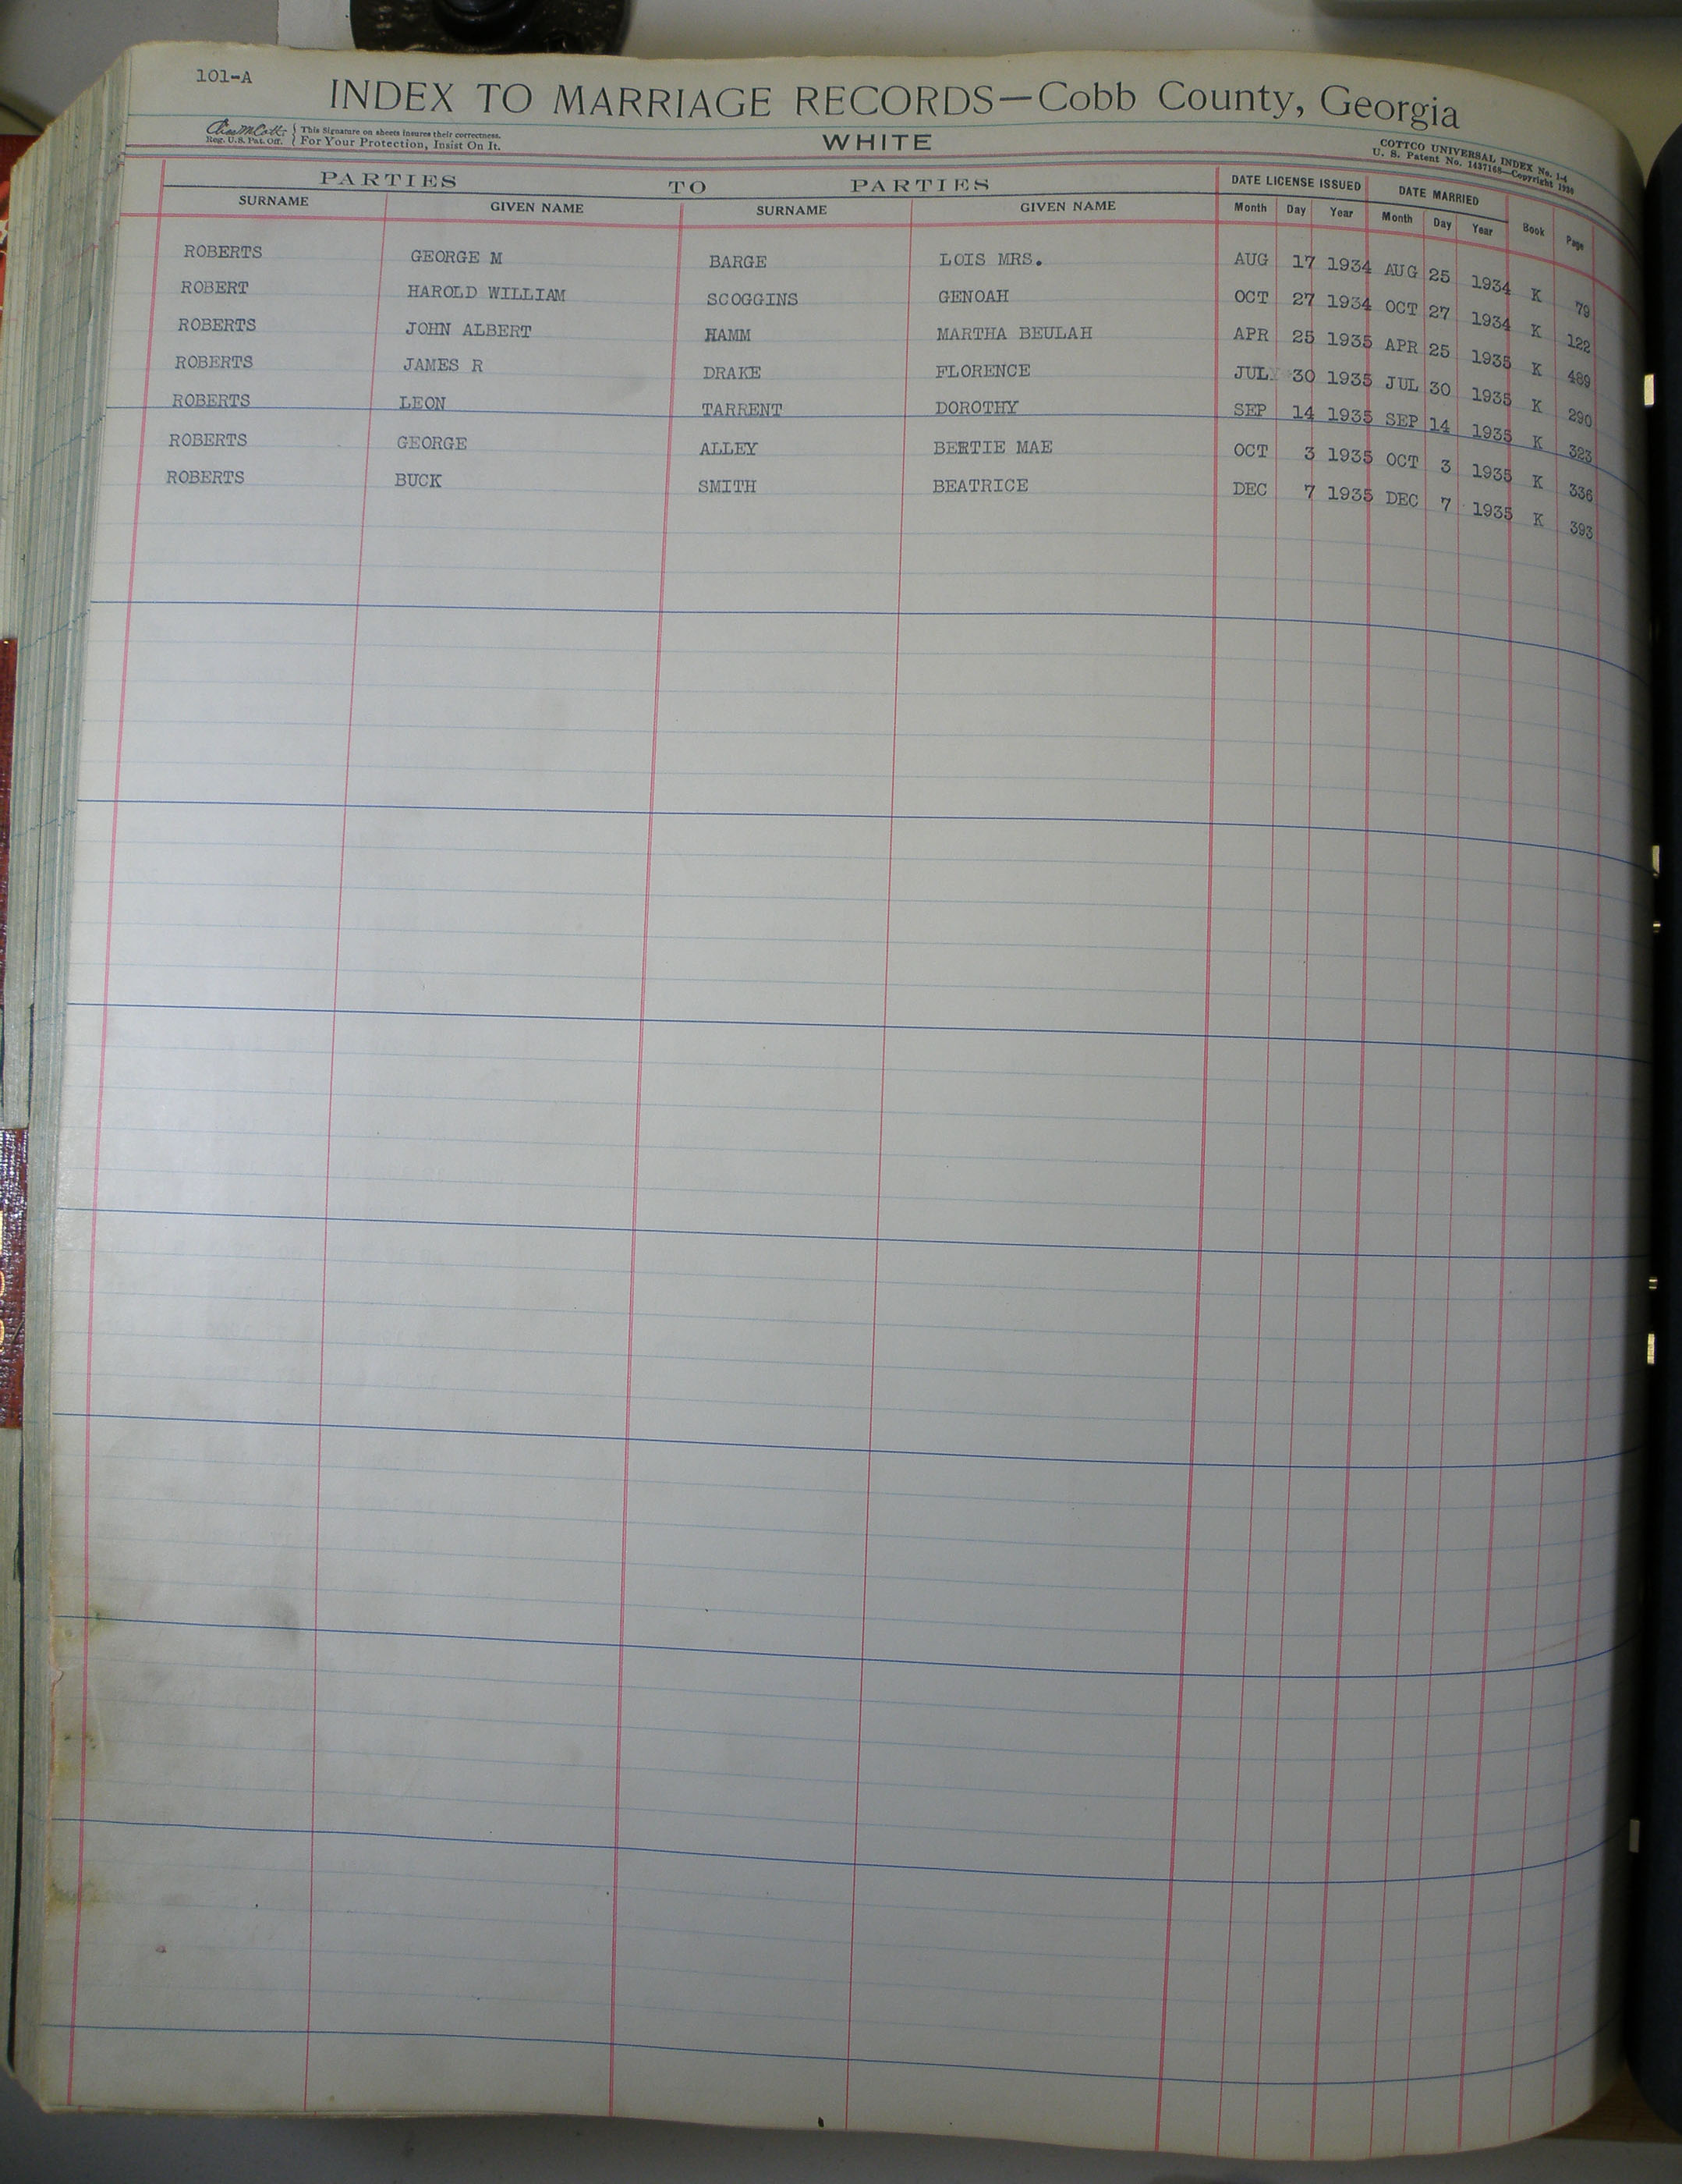 101-A
INDEX TO MARRIAGE RECORDS—Cobb County, Georgia
Reg. U.S. Pat. Off. { This Signature on sheets insures their correctness. For Your Protection, Insist On It.
WHITE
COTTCO UNIVERSAL INDEX No. 1-4
U. S. Patent No. 1437168—Copyright 1930
PARTIES TO PARTIES DATE LICENSE ISSUED DATE MARRIED
SURNAME GIVEN NAME SURNAME GIVEN NAME Month Day Year Month Day Year Book Page
ROBERTS GEORGE M BARGE LOIS MRS. AUG 17 1934 AUG 25 1934 K 79
ROBERT HAROLD WILLIAM SCOGGINS GENOAH OCT 27 1934 OCT 27 1934 K 122
ROBERTS JOHN ALBERT HAMM MARTHA BEULAH APR 25 1935 APR 25 1935 K 489
ROBERTS JAMES R DRAKE FLORENCE JUL 30 1935 JUL 30 1935 K 290
ROBERTS LEON TARRENT DOROTHY SEP 14 1935 SEP 14 1935 K 323
ROBERTS GEORGE ALLEY BERTIE MAE OCT 3 1935 OCT 3 1935 K 336
ROBERTS BUCK SMITH BEATRICE DEC 7 1935 DEC 7 1935 K 393